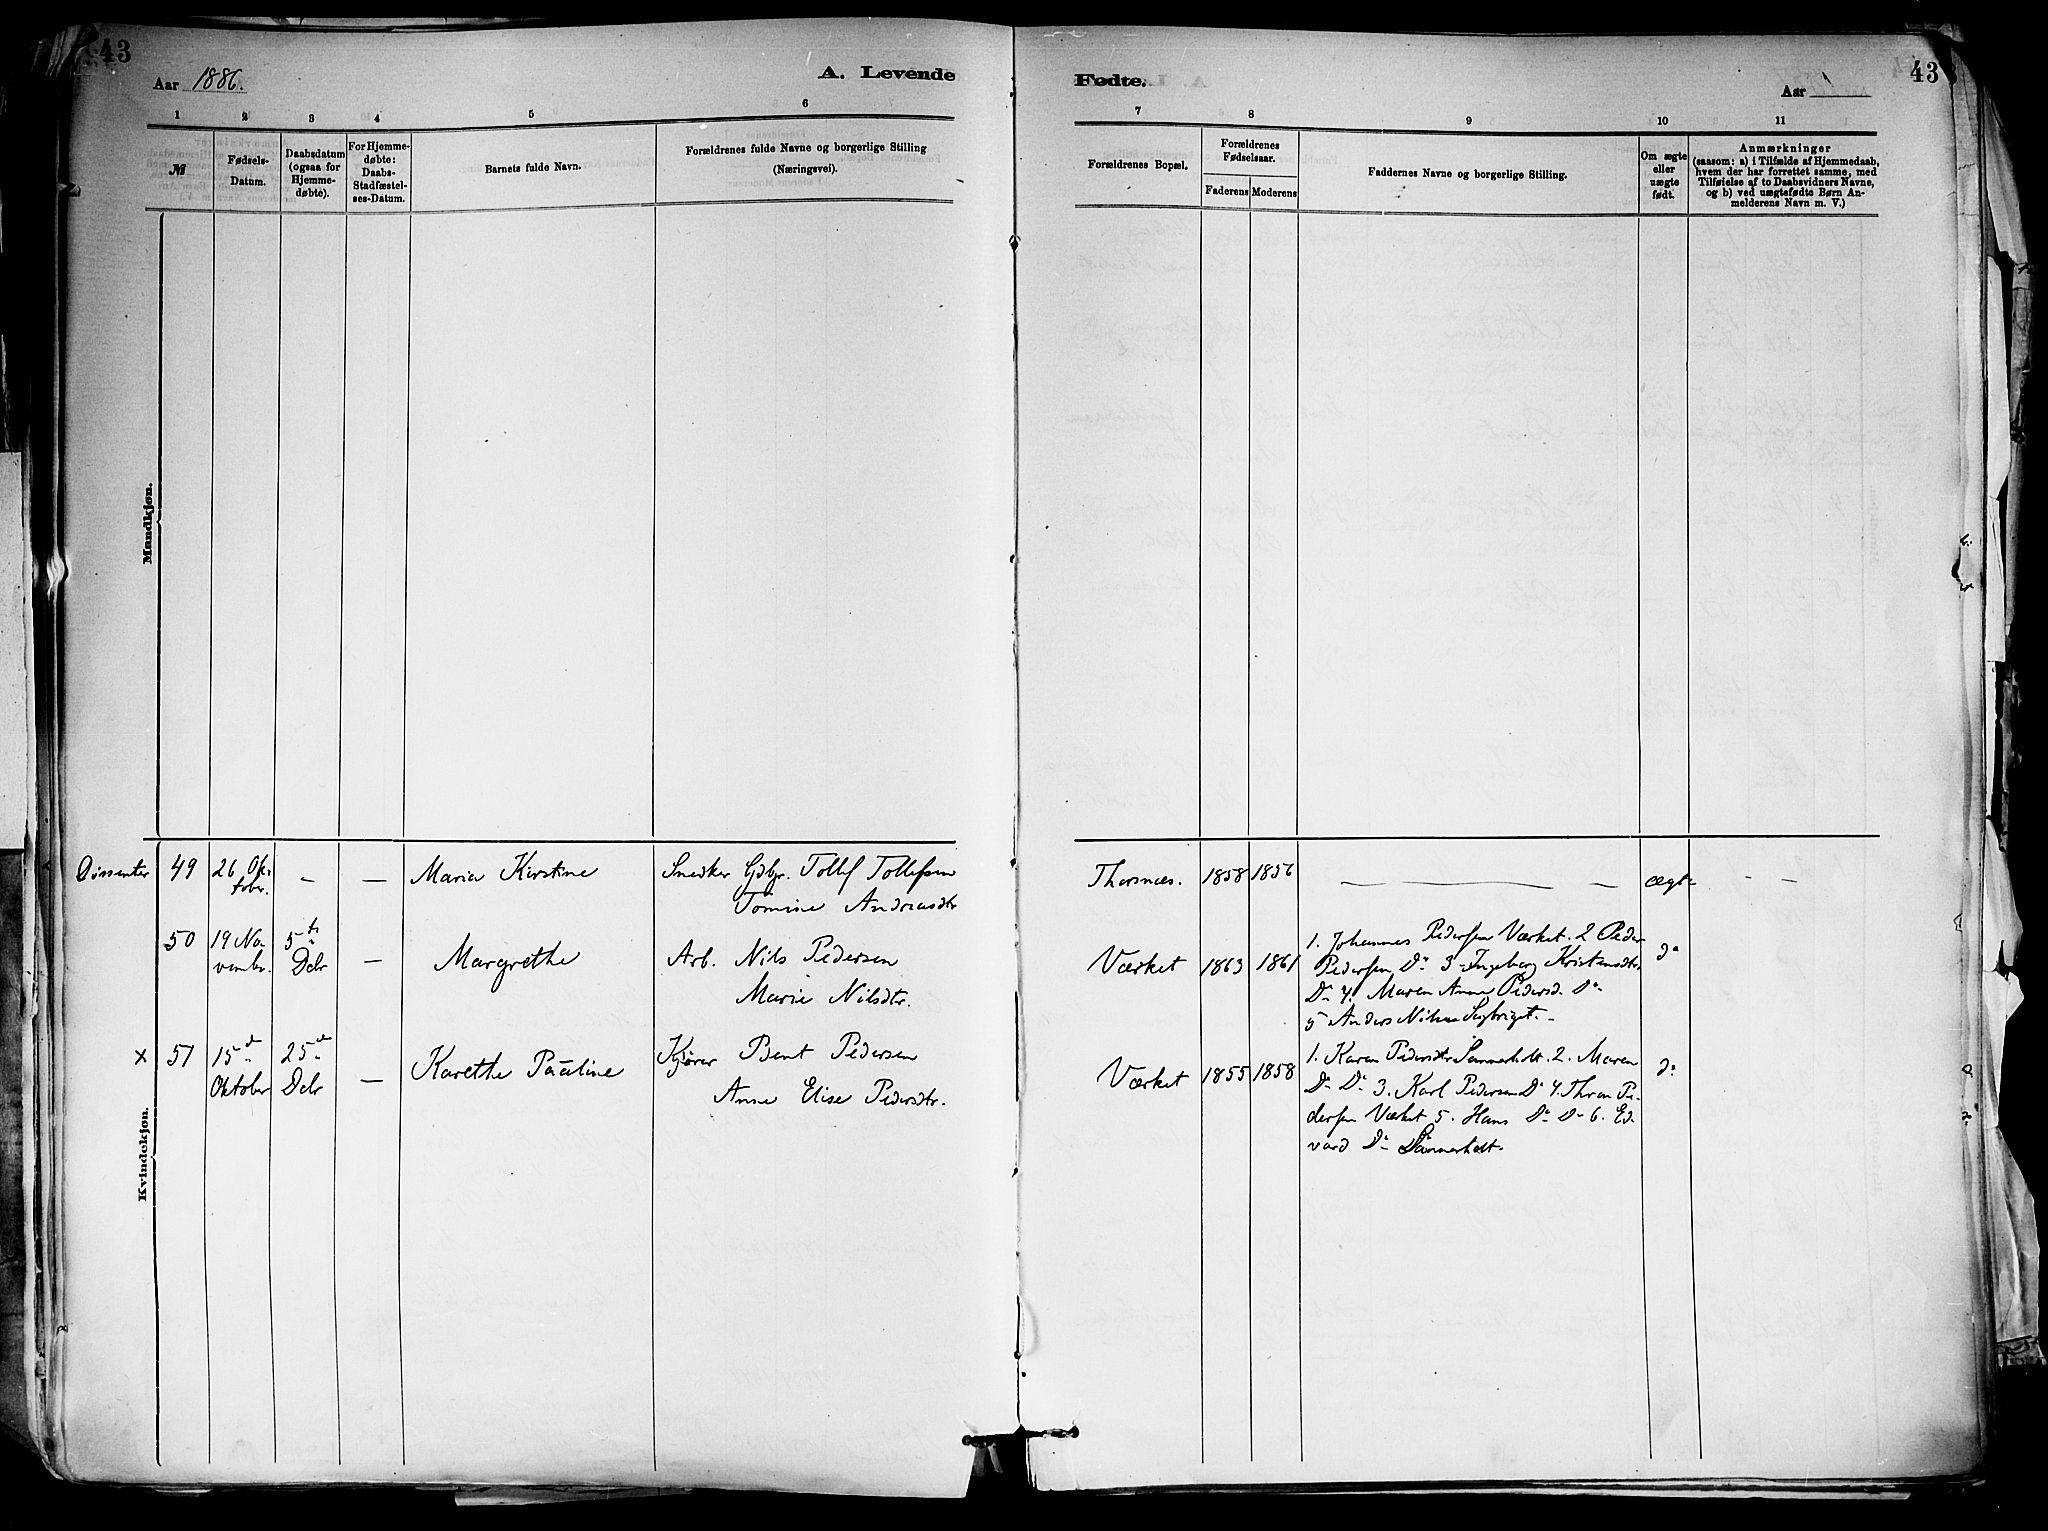 43
Aar 1886.
A. Levende
1 2 3 4 5 6
№
Fødsels-
Datum.
Daabsdatum
(ogsaa for
Hjemme-
døbte).
For Hjemme-
døbte:
Daabs-
Stadfæstel-
ses-Datum.
Barnets fulde Navn.
Forældrenes fulde Navne og borgerlige Stilling
(Næringsvei).
Mandkjøn.
Dissenter 49 26 Ok-
tober. — — Maria Kirstine Snedker Gdbr. Tollef Tollefsen
Tomine Andreasdtr
50 19 No-
vembr. 5te
Decbr — Margrethe Arb. Nils Pedersen
Marie Nilsdtr.
x 51 15de
Oktober 25de
Decbr — Karethe Pauline Kjører Bent Pedersen
Anne Elise Pedersdtr.
Kvindekjøn.
Fødte.
43
Aar
7 8 9 10 11
Forældrenes Bopæl.
Forældrenes
Fødselsaar.
Faderens Moderens
Faddernes Navne og borgerlige Stilling.
Om ægte
eller
uægte
født.
Anmærkninger
(saasom: a) i Tilfælde af Hjemmedaab,
hvem der har forrettet samme, med
Tilføielse af to Daabsvidners Navne,
og b) ved uægtefødte Børn An-
melderens Navn m. V.)
Thorsnæs. 1858 1856 — — — ægte — —
Værket 1863 1861 1. Johannes Pedersen Værket. 2 Peder
Pedersen Do 3 Ingeborg Kristensdtr.
Do 4. Maren Anne Pedersd. Do
5 Anders Nilsen
do
Værket 1855 1858 1. Karen Pedersdtr Sønnerholt. 2. Maren
Do Do 3. Karl Pedersen Do 4. Thron Pe-
dersen Værket 5. Hans Do Do 6. Ed-
vard Do Sønnerholt.
do